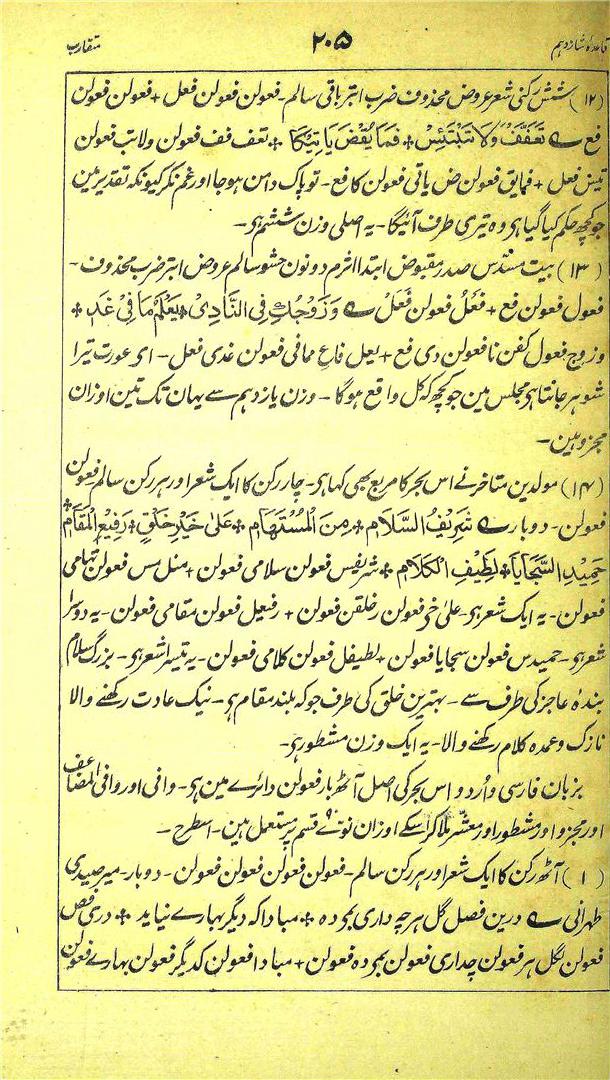 قاعدۂ شانزدہم ۲۰۵ متقارب
(۱۲) شش رکنی شعر عروض محذوف ضرب ابتر باقی سالم۔ فعولن فعولن فعل + فعولن فعولن
فع ؎ تَعَفَّفْ وَلَا تَبْتَئِسْ + فَمَا يُقْضَ يَاتِيْكَا + تعف فف فعولن ولاتب فعولن
تیس فعل + فمایق فعولن ض یاتی فعولن کا فع۔ تو پاک دامن ہو جا اور غم نکر کیونکہ تقدیر مین
جو کچھ حکم کیا گیا ہی وہ تیری طرف آئیگا۔ یہ اصلی وزن ششم ہی۔
(۱۳) بیت مسدس صدر مقبوض ابتدا اثرم دونون حشو سالم عروض ابتر ضرب محذوف۔
فعول فعولن فع + فعْلُ فعولن فَعَلْ ؎ وَزَوْجُكِ فِي النَّادِيْ + يَعْلَمُ مَا فِيْ غَدٍ +
وزوج فعول کفن نا فعولن دی فع + یعل فاع ممافی فعولن غدی فعل۔ ای عورت تیرا
شوہر جانتا ہی مجلس مین جو کچھ کہ کل واقع ہوگا۔ وزن یازدہم سے یہان تک تین اوزان
مجزو ہین۔
(۱۴) مولدین متاخر نے اس بحر کا مربع بھی کہا ہی۔ چار رکن کا ایک شعر اور ہر رکن سالم۔ فعولن
فعولن۔ دو بار ؎ شَرِيْفُ السَّلَام + مِنَ الْمُسْتَهَام + عَلٰی خَيْرِ خَلْقٍ + رَفِيْعِ الْمَقَام +
حَمِيْدِ السَّجَايَا + لَطِيْفِ الْكَلَام + شریفس فعولن سلامی فعولن + منل مس فعولن تہامی
فعولن۔ یہ ایک شعر ہی۔ علیٰ خی فعولن رخلقن فعولن + رفیعل فعولن مقامی فعولن۔ یہ دوسرا
شعر ہی۔ حمیدس فعولن سجایا فعولن + لطیفل فعولن کلامی فعولن۔ یہ تیسرا شعر ہی۔ بزرگ سلام
بندۂ عاجز کی طرف سے۔ بہترین خلق کی طرف جو کہ بلند مقام ہی۔ نیک عادت رکھنے والا
نازک و عمدہ کلام رکھنے والا۔ یہ ایک وزن مشطور ہی۔
بزبان فارسی و اُردو اس بحر کی اصل آٹھ بار فعولن دائرے مین ہی۔ وافی اور وافی المضاعف
اور مجزو اور مشطور اور معشر ملا کر اسکے اوزان نوّے قسم پر مستعمل ہین۔ اسطرح۔
(۱) آٹھ رکن کا ایک شعر اور ہر رکن سالم۔ فعولن فعولن فعولن فعولن۔ دو بار۔ میر صیدی
طہرانی ؎ درین فصل گل ہر چہ داری بمی دہ + مبادا کہ دیگر بہارے نیاید + دری فص
فعولن لگل ہر فعولن چداری فعولن بمی دہ فعولن + مبادا فعولن کدیگر فعولن بہارے فعولن